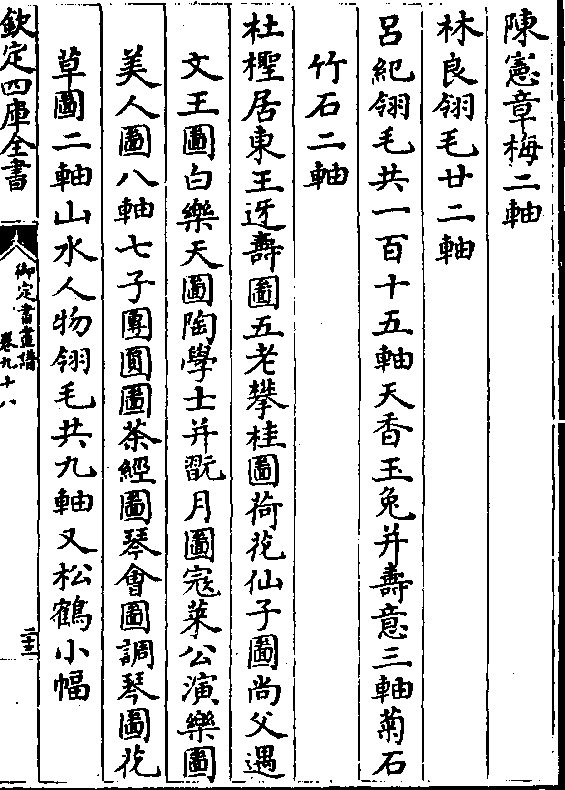 陳憲章梅二軸
林良翎毛廿二軸
呂紀翎毛共一百十五軸天香玉兔并壽意三軸菊石
竹石二軸
杜檉居東王迓壽圖五老攀桂圖荷花仙子圖尚父遇
文王圖白樂天圖陶學士并翫月圖寇萊公演樂圖
美人圖八軸七子團圓圖茶經圖琴會圖調琴圖花
草圖二軸山水人物翎毛共九軸又松鶴小幅
欽定四庫全書
御定書畫譜
卷九十八
二十三